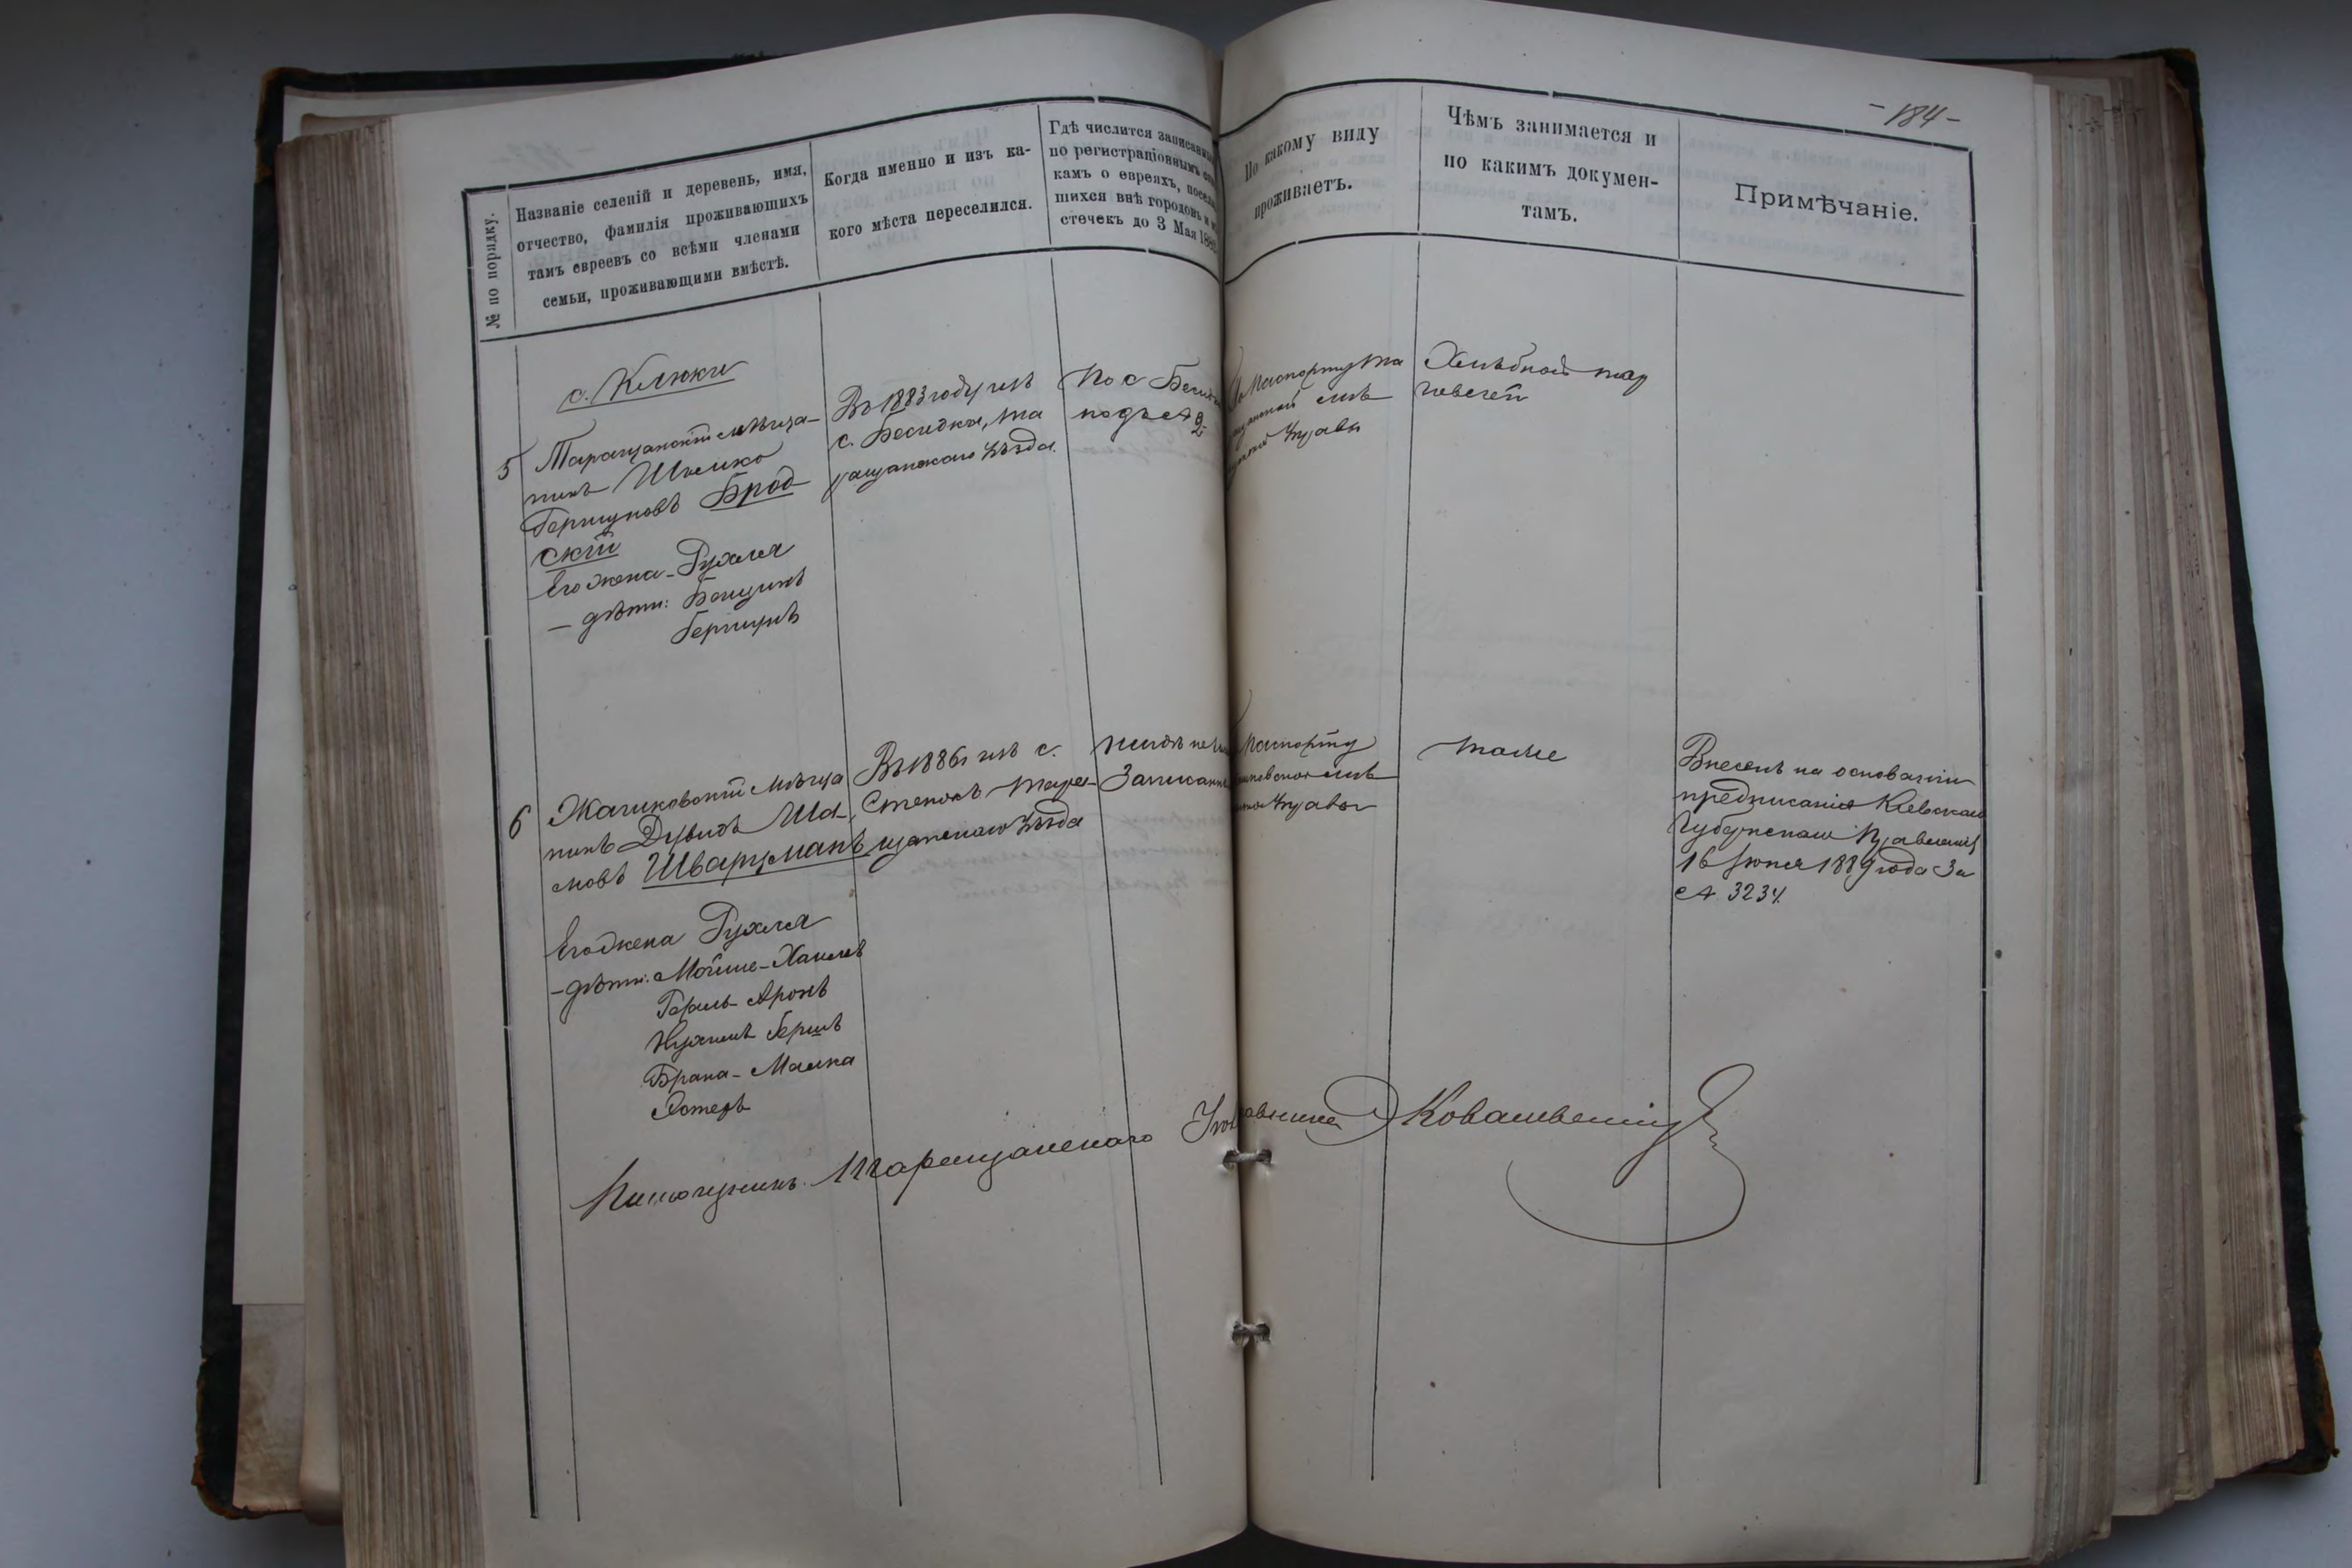 -184-
№ по порядку.
Названіе селеній и деревень, имя,
отчество, фамилія проживающихъ
тамъ евреевъ со всѣми членами
семьи, проживающими вмѣстѣ.
Когда именно и изъ ка-
кого мѣста переселился.
Гдѣ числится записанны
по регистраціоннымъ спис
камъ о евреяхъ, посели
шихся внѣ городовъ и мѣ
стечекъ до 3 Мая 188
По какому виду
проживаетъ.
Чѣмъ занимается и
по какимъ докумен-
тамъ.
Примѣчаніе.
с. Клюки
5
Таращанскій мѣща-
нинъ Шлемко
Гершуновъ Брод
скій
Его жена - Рухля
— дѣти: Бенцинъ
Гершунъ
Въ 1883 году изъ
с. Беседки, та
ращанскаго уѣзда.
По с. Бесед
подъ № 2
По паспорту та
ращанской мѣ
щанской управы
Хлѣбной тор
говлей
6
Жашковскій мѣща
нинъ Дувидъ Шл
мовъ Шварцманъ
Его жена Рухля
- дѣти: Мойше-Хаим
Аронъ
Нухимъ Гершъ
Брана - Малка
Эстеръ
Въ 1886 изъ с.
Степокъ Тара-
щанскаго уѣзда
нигдѣ не
Записанъ
Паспорту
Жашковской мѣ
щанской управы
тоже
Внесенъ на основаніи
предписанія Кіевскаго
Губернскаго Правленія
16 Іюня 1889 года за
№ 3234.
Таращанскаго Исправника Ковалевскій